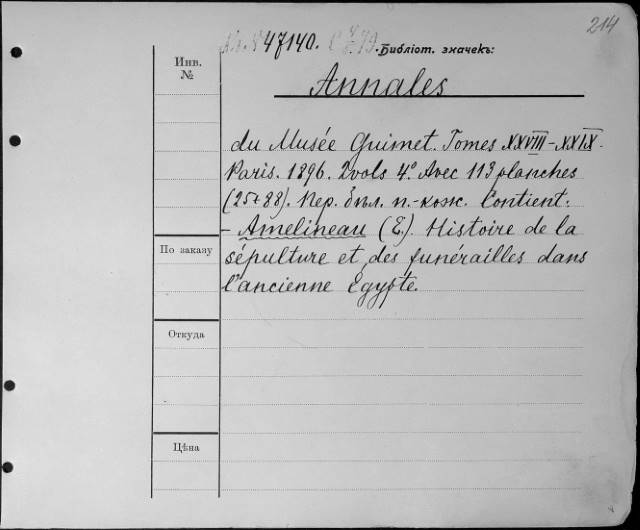 214
47140.
Библіот. значекъ:
Инв.
№
Annales
du Musée Guimet. Tomes XXVIII-XXIX.
Paris. 1896. 2 vols 4°. Avec 113 planches
(25+88). Пер. бѣл. п.-кож. Contient:
- Amelineau (E.) Histoire de la
По заказу
sépulture et des funérailles dans
l'ancienne Égypte.
Откуда
Цѣна